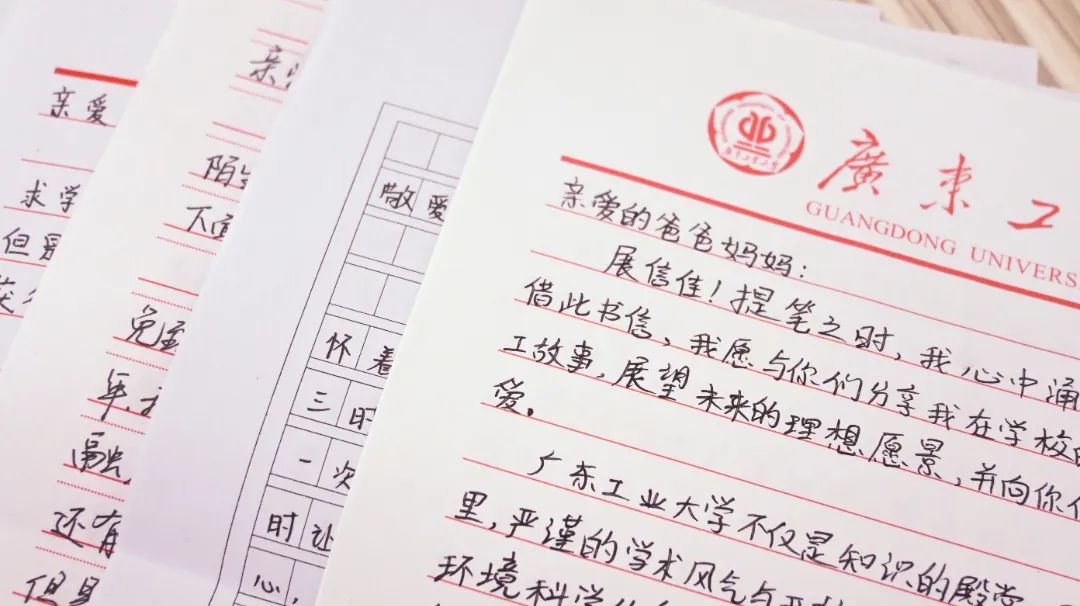 亲爱
求学
但是
亲
陌
下面
免
年
融
还有
但是
敬爱
怀着
三时
一次
时让
心,
廣東工
GUANGDONG UNIVERS
亲爱的爸爸妈妈:
展信佳!提笔之时,我心中涌
借此书信、我愿与你们分享我在学校的
工故事,展望未来的理想愿景,并向你们
爱.
广东工业大学不仅是知识的殿堂
里,严谨的学术风气与
环境科学